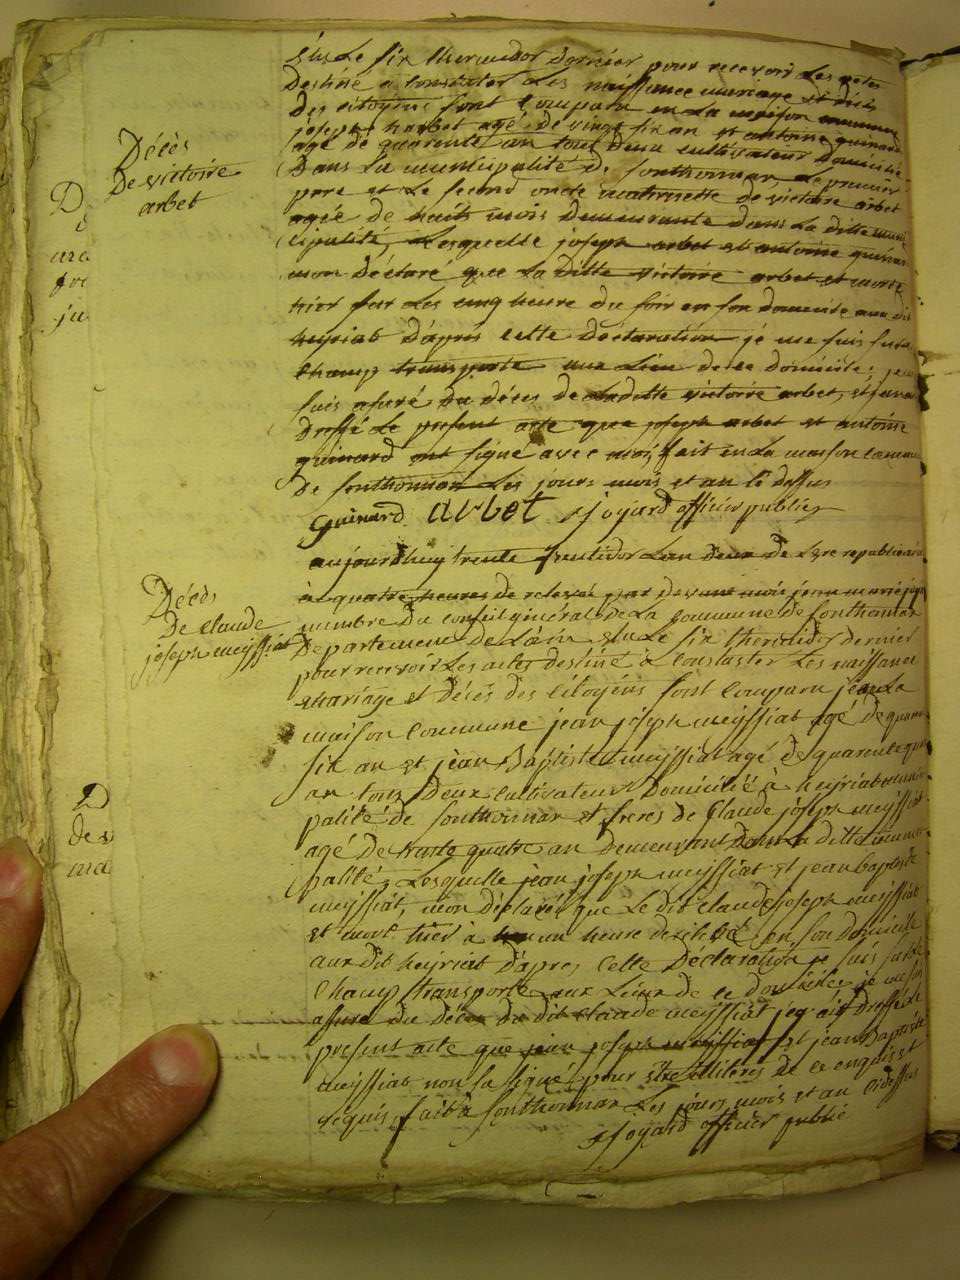 élus Le six thermidor dernier pour recevoir Les actes
Destiné a constater Les naissance mariage et décès
Des citoyens sont comparu en La maison commune
joseph harbet agé de vingt six an et antoine guinard
agé de quarente an tous deux cultivateur domicilié
Dans La municipalité de sonthonnax, Le premier
pere et Le second oncle maternelle de victoire arbet
agée de huits mois demeurante dans La ditte muni
cipalité, Lesquelle joseph arbet et antoine guinar
mon déclaré que La ditte victoire arbet et morte
hier sur Les cinq heure du soir en son domicile au dit
heyriat d'apres cette déclaration je me suis sur le
champ transporté aux Lieu de ce domicile; je me
suis assuré du décès de Laditte victoire arbet, et j'en ai
dressé Le present acte que joseph arbet et antoine
guinard ont signé avec moi, fait en La maison commune
de sonthonnax Les jours mois et an si dessus
guinard arbet joyard officier public
Décès
De victoire
arbet
aujourd'huy trente fructidor Lan deux de L'ere republicaine
à quatre heures de relevé par devans moi jean marie joya
membre du conseil général de La commune de sonthonnax
departement de L'ain élu Le six thermidor dernier
pour recevoir Les actes destiné à constaster Les naissance
mariage et décès des citoyéns sont comparu en La
maison commune jean joseph meyssiat agé de quarante
six an et jean Baptiste meyssiat agé de quarente quatre
an tous deux cultivateur domicilié à heyriat munici
palité de sonthonnax et freres de Claude joseph meyssiat
agé de trante quatre an demeurant dans La ditte munici
palité, Lesquelle jean joseph meyssiat et jean baptiste
meyssiat, mon déclaré que Le dit claude joseph meyssiat
et mort hier à un heure de relevé en son domicile
aux dit heyriat d'apres cette déclaration je suis sur le
champ transporté aux Lieux de ce domicile, je me suis
assuré du décès du dit claude meyssiat j'en ait dressé Le
present acte que jean joseph meyssiat et jean Baptiste
meyssiat non pas signé pour être illiteres de ce enquis et
requis, fait à sonthonnax Les jours, mois et an cidessus
joyard officier public
Décès
De claude
joseph meyssiat